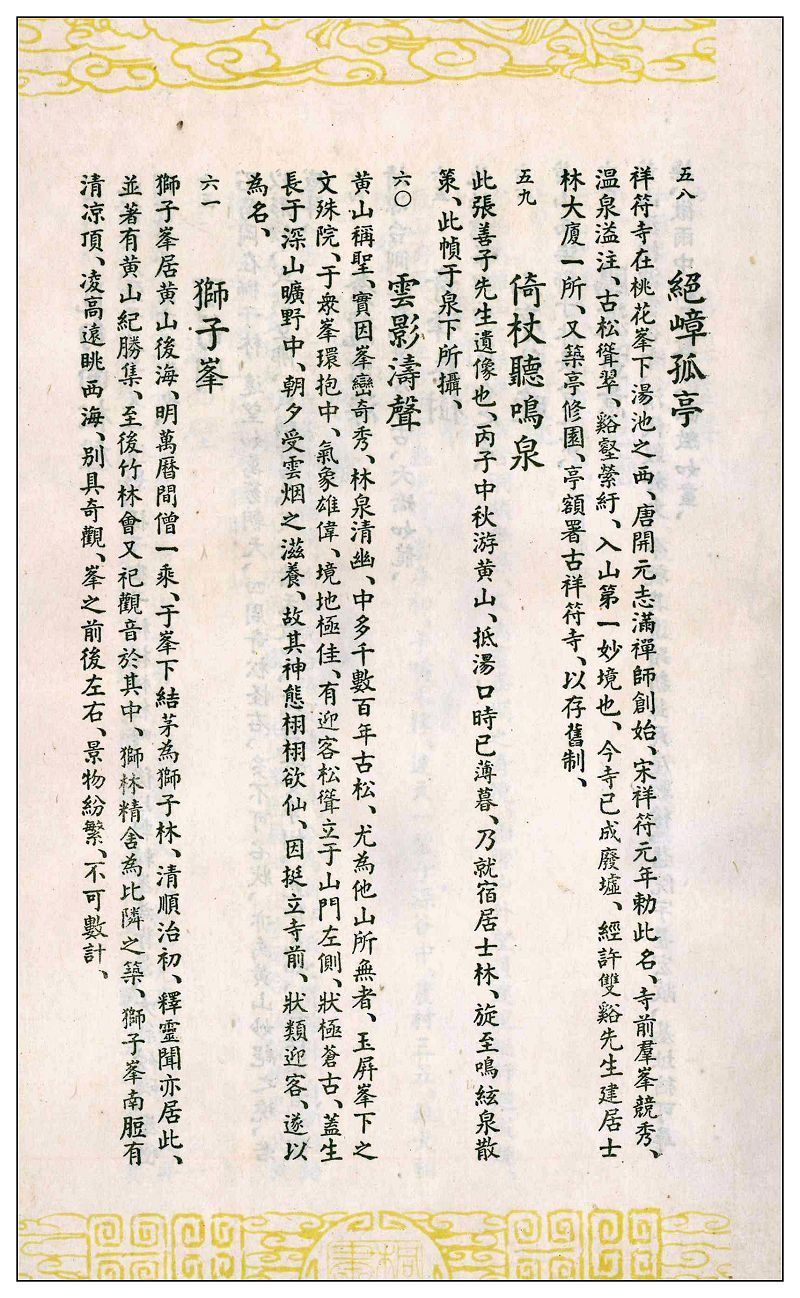 五八
絕嶂孤亭
祥符寺在桃花峯下湯池之西、唐開元志滿禪師創始、宋祥符元年勅此名、寺前羣峯競秀、
温泉溢注、古松聳翠、谿壑縈紆、入山第一妙境也、今寺已成廢墟、經許雙谿先生建居士
林大廈一所、又築亭修園、亭額署古祥符寺、以存舊制、
五九
倚杖聽鳴泉
此張善子先生遺像也、丙子中秋游黄山、抵湯口時已薄暮、乃就宿居士林、旋至鳴絃泉散
策、此幀于泉下所攝、
六〇
雲影濤聲
黄山稱聖、實因峯巒奇秀、林泉清幽、中多千數百年古松、尤為他山所無者、玉屏峯下之
文殊院、于衆峯環抱中、氣象雄偉、境地極佳、有迎客松聳立于山門左側、狀極蒼古、蓋生
長于深山曠野中、朝夕受雲烟之滋養、故其神態栩栩欲仙、因挺立寺前、狀類迎客、遂以
為名、
六一
獅子峯
獅子峯居黄山後海、明萬曆間僧一乘、于峯下結茅為獅子林、清順治初、釋靈聞亦居此、
並著有黄山紀勝集、至後竹林會又祀觀音於其中、獅林精舍為比隣之築、獅子峯南脰有
清凉頂、凌高遠眺西海、别具奇觀、峯之前後左右、景物紛繁、不可數計、